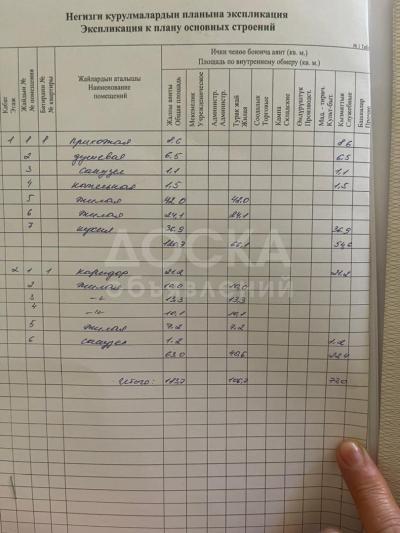 Негизги курулмалардын планына экспликация
Экспликация к плану основных строений
Ички ченөө боюнча аянт (кв. м.)
Площадь по внутреннему обмеру (кв. м.)
Кабат Этаж
Жайдын № № помещения
Батирдин № № квартиры
Жайлардын аталышы Наименование помещений
Жалпы аянты Общая площадь
Мекемелик Учрежденческое
Администр. Администр.
Турак жай Жилая
Соодалык Торговое
Кампа Складские
Өндүрүштүк Производст.
Мад. - терич. Культ-быт.
Кызматтык Служебные
Башкалар
1 8 Прихожая 8.6 8.6
2 душевая 6.5 6.5
3 санузел 1.1 1.1
4 котельная 1.5 1.5
5 жилая 42.0 42.0
6 жилая 24.1 24.1
7 кухня 36.9 36.9
120.7 66.1 54.6
2 1 1 коридор 21.2 21.2
2 жилая 10.0 10.0
3 -"- 13.3 13.3
4 -"- 10.1 10.1
5 жилая 7.2 7.2
6 санузел 1.2 1.2
63.0 40.6 22.4
Итого: 183.7 106.7 77.0
ДОСКА
Объявлений